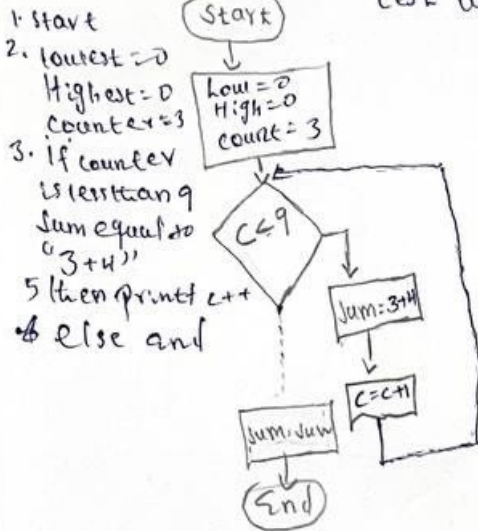 1. start
2. lowest = 0
Highest = 0
counter = 3
3. if counter
is less than 9
sum equal to
"3+4"
5 then print c++
else and
Start
Low = 0
High = 0
count = 3
C<9
sum = 3+4
C=C+1
End